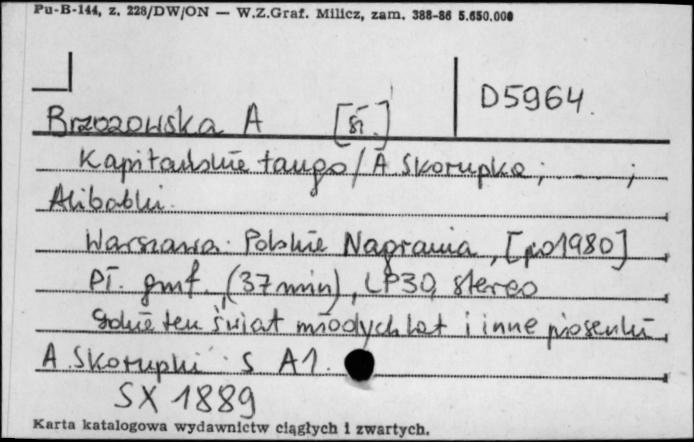 Pu-B-144, z. 228/DW/ON — W.Z.Graf. Milicz, zam. 388-86 5.650.000
D5964.
Brzozowska A [sł.]
Kapitańskie tango / A Skorupka ; ... ;
Alibabki.
Warszawa : Polskie Nagrania, [po1980]
Pł. gmf., (37 min), LP30, stereo
Gdzie ten świat młodych lat i inne piosenki
A. Skorupki S A1.
SX 1889
Karta katalogowa wydawnictw ciągłych i zwartych.